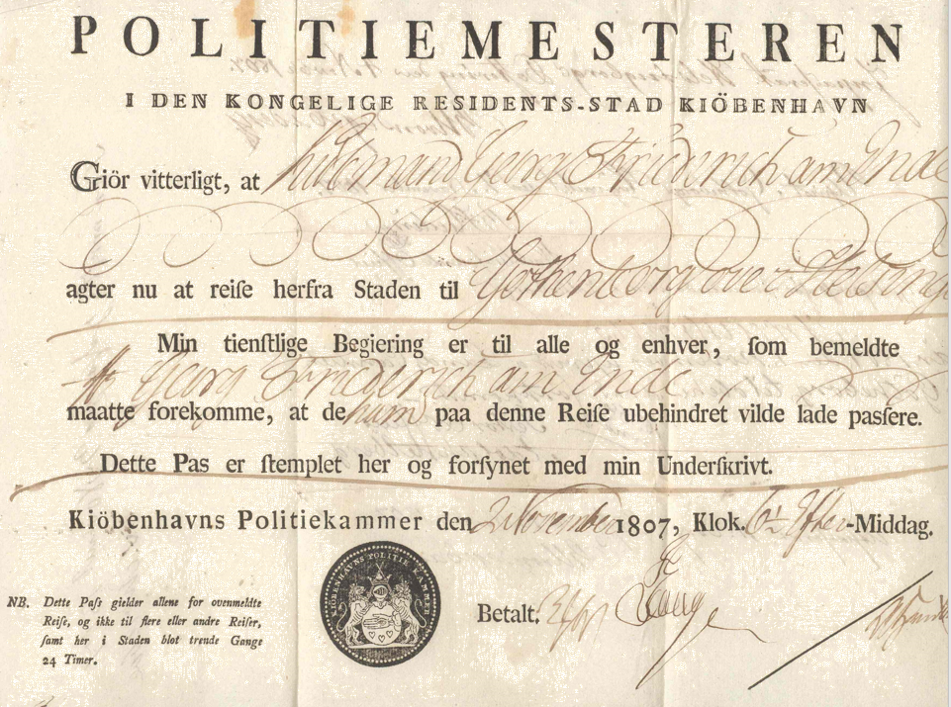 POLITIEMESTEREN
I DEN KONGELIGE RESIDENTS-STAD KIÖBENHAVN
Giör vitterligt, at Kiøbmand Georg Friderich am Ende
agter nu at reiſe herfra Staden til Gothenborg over Helsing
Min tienſtlige Begiering er til alle og enhver, ſom bemeldte
Georg Friderich am Ende
maatte forekomme, at de ham paa denne Reiſe ubehindret vilde lade paſſere.
Dette Pas er ſtemplet her og forſynet med min Underſkrivt.
Kiöbenhavns Politiekammer den 2 November 1807, Klok. 6½ Efter-Middag.
KIÖBENHAVNS POLITIE KAMMER
NB. Dette Paſs gielder allene for ovenmeldte
Reiſe, og ikke til flere eller andre Reiſer,
ſamt her i Staden blot trende Gange
24 Timer.
Betalt.